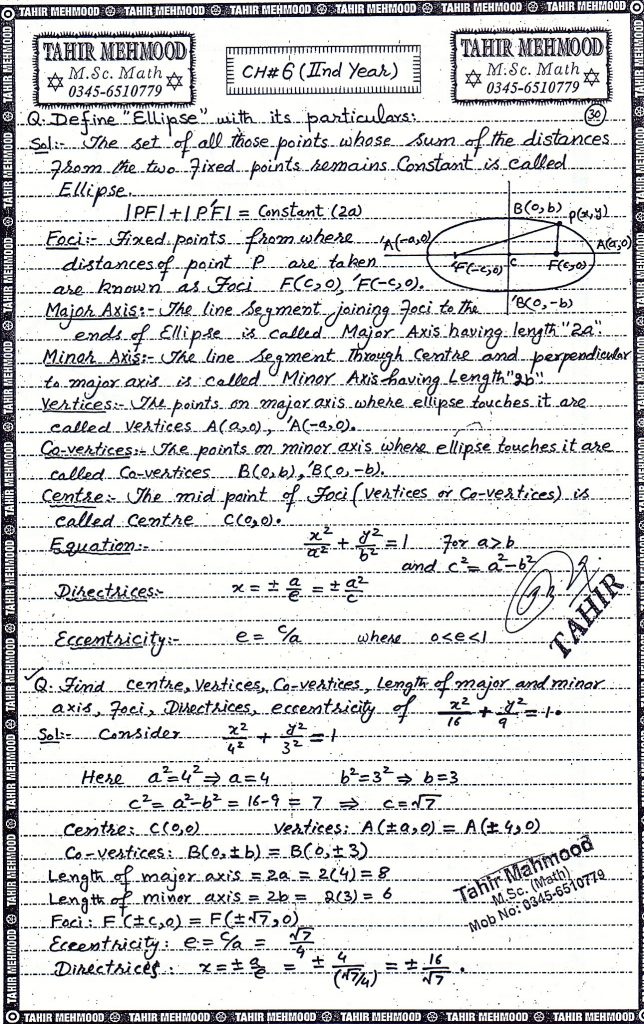 TAHIR MEHMOOD TAHIR MEHMOOD TAHIR MEHMOOD TAHIR MEHMOOD TAHIR MEHMOOD
TAHIR MEHMOOD
M.Sc. Math
0345-6510779
CH# 6 (IInd Year)
TAHIR MEHMOOD
M.Sc. Math
0345-6510779
Q. Define "Ellipse" with its particulars:
30
Sol:- The set of all those points whose sum of the distances
from the two fixed points remains Constant is called
Ellipse.
|PF| + |P'F| = Constant (2a)
B(0,b)
P(x,y)
'A(-a,0)
A(a,0)
'F(-c,0)
C
F(c,0)
'B(0,-b)
Foci:- Fixed points from where
distances of point P are taken
are known as Foci F(c,0), 'F(-c,0).
Major Axis:- The line Segment joining foci to the
ends of Ellipse is called Major Axis having length "2a".
Minor Axis:- The line Segment through Centre and perpendicular
to major axis is called Minor Axis having Length "2b".
Vertices:- The points on major axis where ellipse touches it are
called Vertices A(a,0), 'A(-a,0).
Co-vertices:- The points on minor axis where ellipse touches it are
called Co-vertices B(0,b), 'B(0,-b).
Centre:- The mid point of Foci (Vertices or Co-vertices) is
called Centre C(0,0).
Equation:- x²/a² + y²/b² = 1 for a>b
and c² = a²-b²
Directrices:- x = ± a/e = ± a²/c
TAHIR
Eccentricity:- e = c/a where 0<e<1
Q. Find centre, Vertices, Co-vertices, Length of major and minor
axis, foci, Directrices, eccentricity of x²/16 + y²/9 = 1.
Sol:- Consider x²/4² + y²/3² = 1
Here a²=4² ⇒ a=4 b²=3² ⇒ b=3
c² = a²-b² = 16-9 = 7 ⇒ c=√7
Centre: C(0,0) Vertices: A(±a,0) = A(±4,0)
Co-vertices: B(0,±b) = B(0,±3)
Length of major axis = 2a = 2(4) = 8
Length of minor axis = 2b = 2(3) = 6
Foci: F(±c,0) = F(±√7,0)
Eccentricity: e = c/a = √7/4
Directrices: x = ± a/e = ± 4/(√7/4) = ± 16/√7.
Tahir Mahmood
M.Sc. (Math)
Mob No: 0345-6510779
TAHIR MEHMOOD TAHIR MEHMOOD TAHIR MEHMOOD TAHIR MEHMOOD TAHIR MEHMOOD